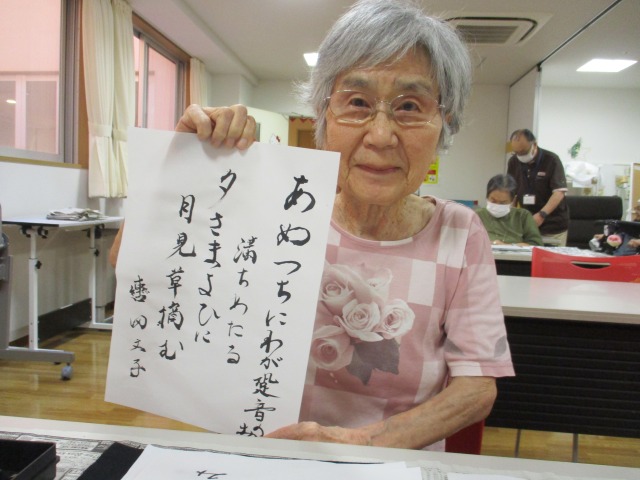 あめつちにわが跫音の
満ちわたる
夕さまよひに
月見草摘む